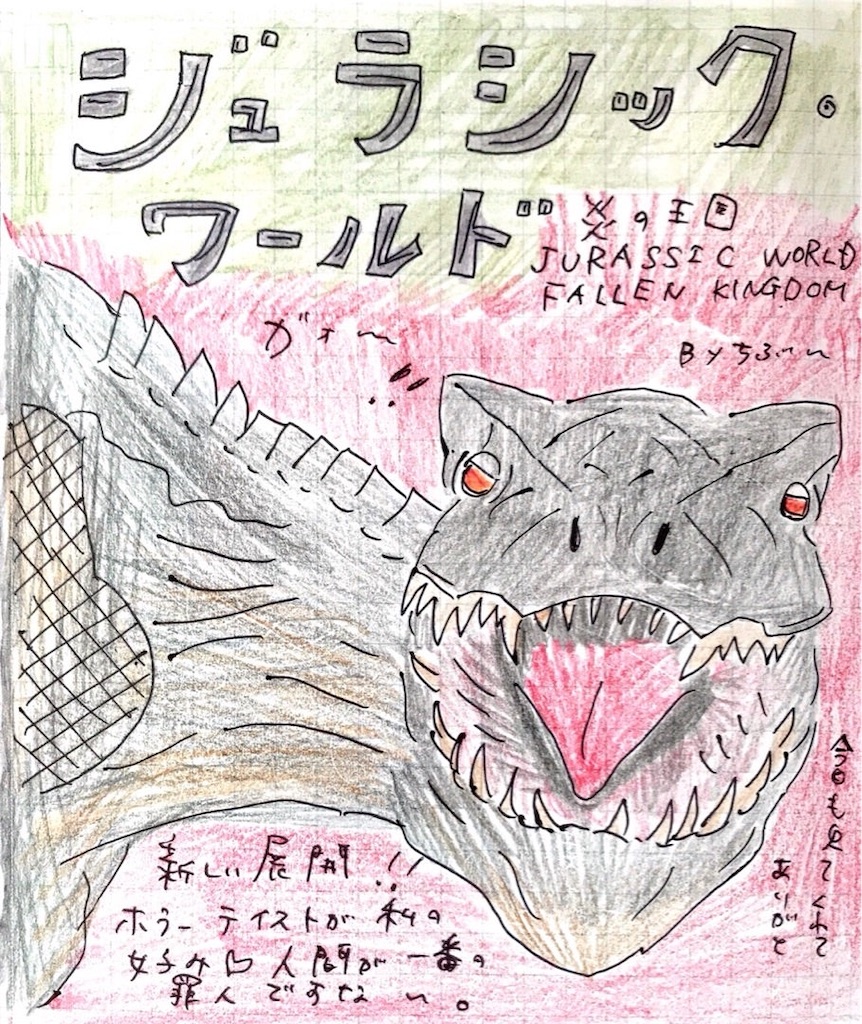 ジュラシック。
ワールド
炎の王国
JURASSIC WORLD
FALLEN KINGDOM
ガォ〜!!
BYちふ〜
新しい展開!!
ホラーテイストが私の
好み□人間が一番の
罪人ですな〜。
今日も見てくれて
ありがと